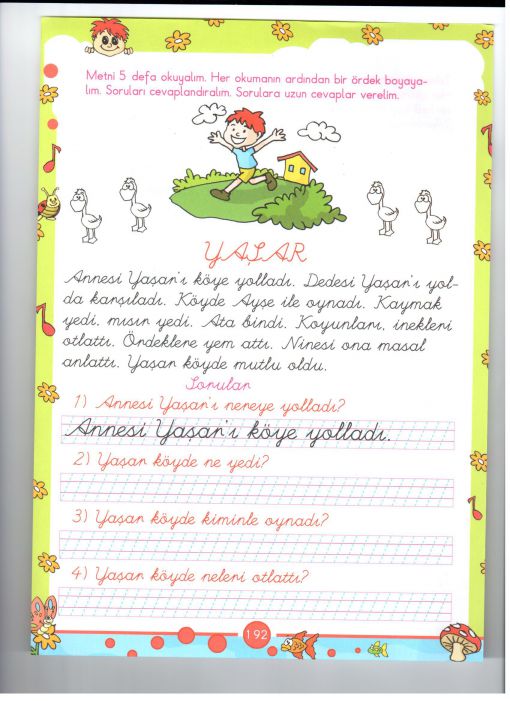 Metni 5 defa okuyalım. Her okumanın ardından bir ördek boyaya-
lım. Soruları cevaplandıralım. Sorulara uzun cevaplar verelim.
YAŞAR
Annesi Yaşar'ı köye yolladı. Dedesi Yaşar'ı yol-
da karşıladı. Köyde Ayşe ile oynadı. Kaymak
yedi, mısır yedi. Ata bindi. Koyunları, inekleri
otlattı. Ördeklere yem attı. Ninesi ona masal
anlattı. Yaşar köyde mutlu oldu.
Sorular
1) Annesi Yaşar'ı nereye yolladı?
Annesi Yaşar'ı köye yolladı.
2) Yaşar köyde ne yedi?
3) Yaşar köyde kiminle oynadı?
4) Yaşar köyde neleri otlattı?
192